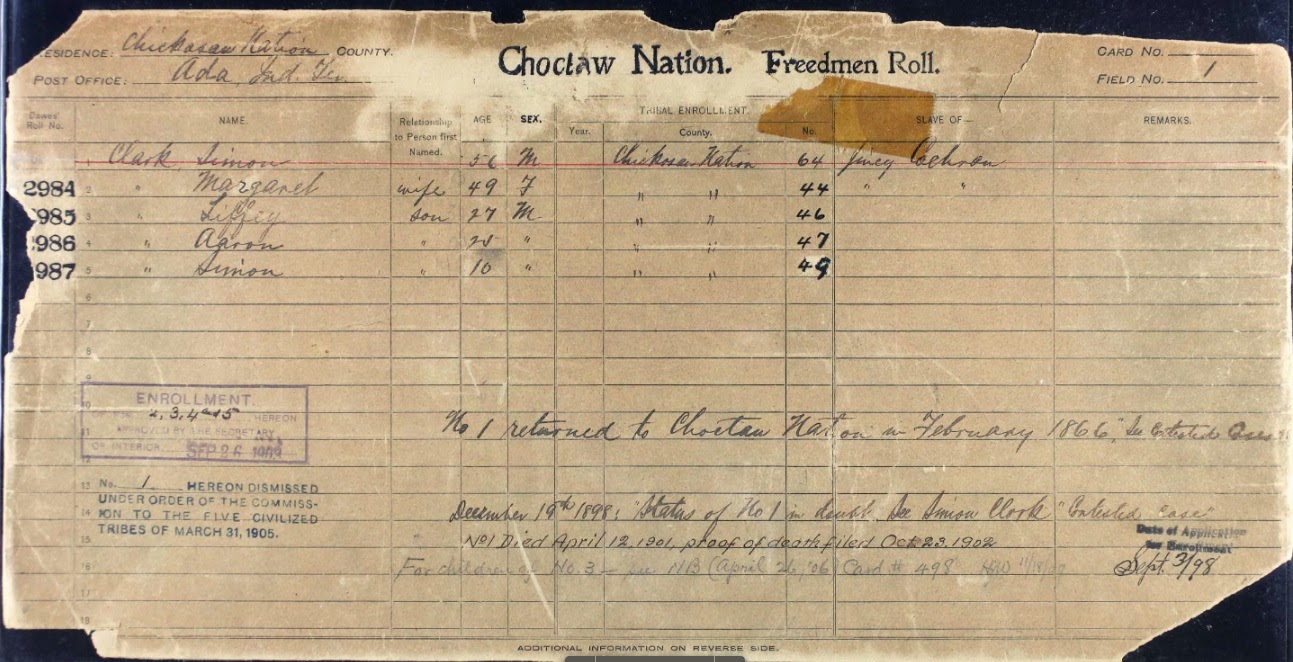 RESIDENCE: Chickasaw Nation COUNTY.
POST OFFICE: Ada, Ind. Ter.
Choctaw Nation. Freedmen Roll.
CARD NO.
FIELD NO. 1
Dawes' Roll No.
NAME.
Relationship to Person first Named.
AGE
SEX.
TRIBAL ENROLLMENT.
Year.
County.
No.
SLAVE OF—
REMARKS.
1 Clark, Simon 56 M Chickasaw Nation 64 Jincy Cochran
2984 2 " Margaret wife 49 F " " 44 " "
985 3 " Siffey son 27 M " " 46
986 4 " Aaron " 25 " " " 47
987 5 " Simon " 10 " " " 49
6
7
8
9
10
11
12
13
14
15
16
17
18
ENROLLMENT.
OF NOS. 2, 3, 4 and 5 HEREON
APPROVED BY THE SECRETARY
OF INTERIOR SEP 26
No 1 returned to Choctaw Nation in February 1866, "See Contested Cases"
No. 1 HEREON DISMISSED
UNDER ORDER OF THE COMMISS-
ION TO THE FIVE CIVILIZED
TRIBES OF MARCH 31, 1905.
December 19th 1898: "Status of No 1 in doubt. See Simon Clark" "Contested case"
No1 Died April 12, 1901, proof of death filed Oct. 23. 1902
For children of No. 3 — see NB (April 26, '06) Card # 498
Date of Application
for Enrollment
Sept. 3/98
ADDITIONAL INFORMATION ON REVERSE SIDE.